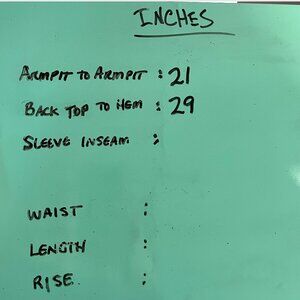 INCHES
ARMPIT TO ARMPIT : 21
BACK TOP TO HEM : 29
SLEEVE INSEAM :
WAIST :
LENGTH :
RISE :